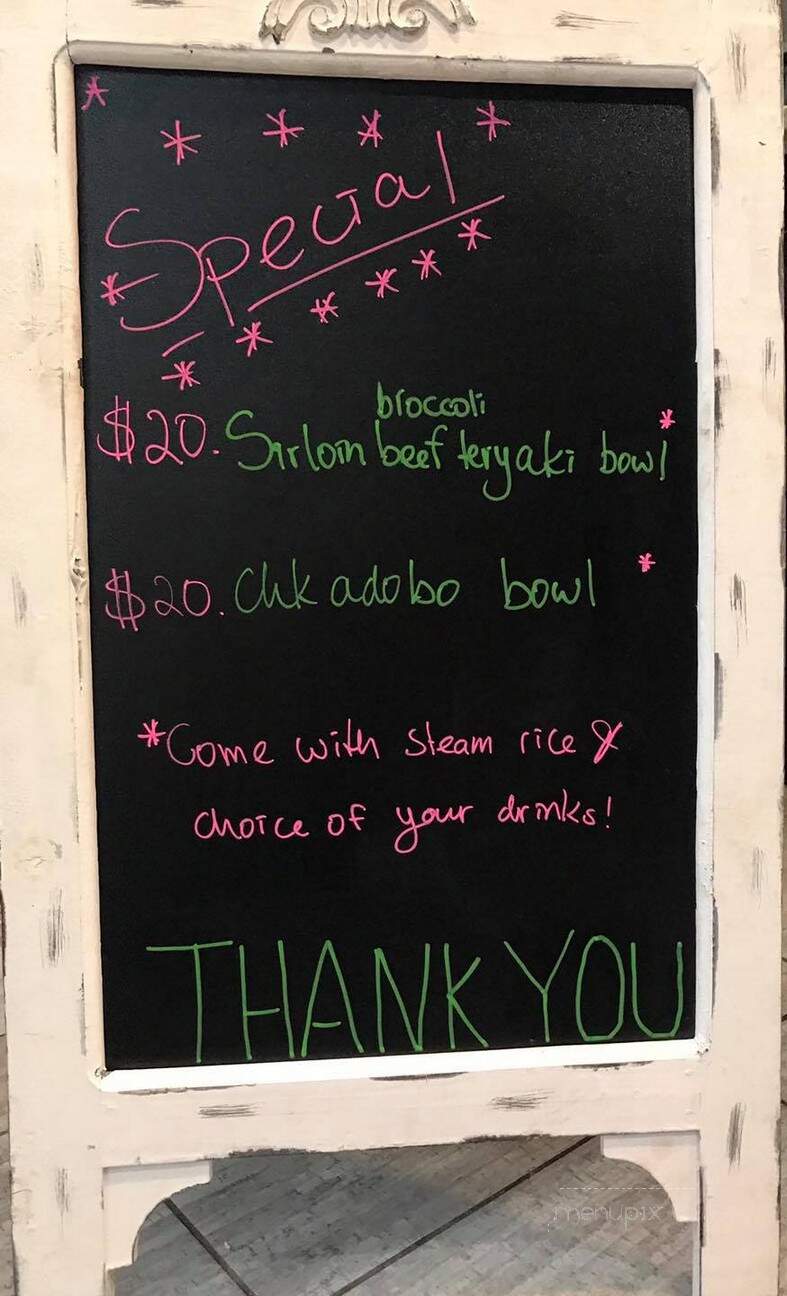 Special
$20. Sirloin broccoli beef teryaki bowl *
$20. Chk adobo bowl *
*Come with steam rice &
choice of your drinks!
THANK YOU
menupix